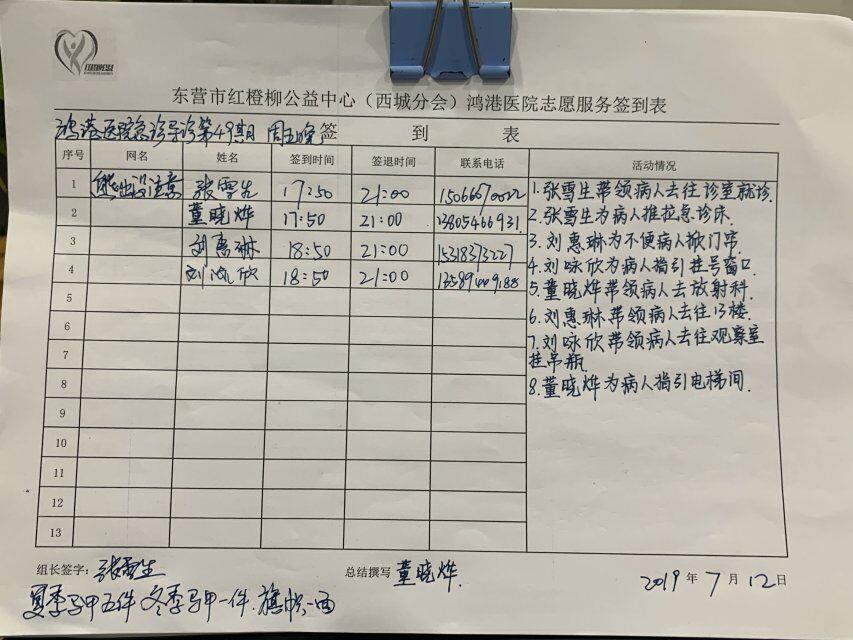 东营市红橙柳公益中心（西城分会）鸿港医院志愿服务签到表
鸿港医院急诊导诊第49期 周五晚 签 到 表
序号 网名 姓名 签到时间 签退时间 联系电话 活动情况
1 熊出没注意 张雪生 17:50 21:00 15066670022
2 董晓烨 17:50 21:00 13805466931
3 刘惠琳 18:50 21:00 15318373227
4 刘咏欣 18:50 21:00
5
6
7
8
9
10
11
12
13
1.张雪生带领病人去往诊室就诊.
2.张雪生为病人推拉急诊床.
3.刘惠琳为不便病人掀门帘
4.刘咏欣为病人指引挂号窗口
5.董晓烨带领病人去放射科.
6.刘惠琳带领病人去往13楼.
7.刘咏欣带领病人去往观察室
挂吊瓶.
8.董晓烨为病人指引电梯间.
组长签字：张雪生 总结撰写 董晓烨. 2019 年 7 月 12 日
夏季马甲五件 冬季马甲一件.旗帜一面